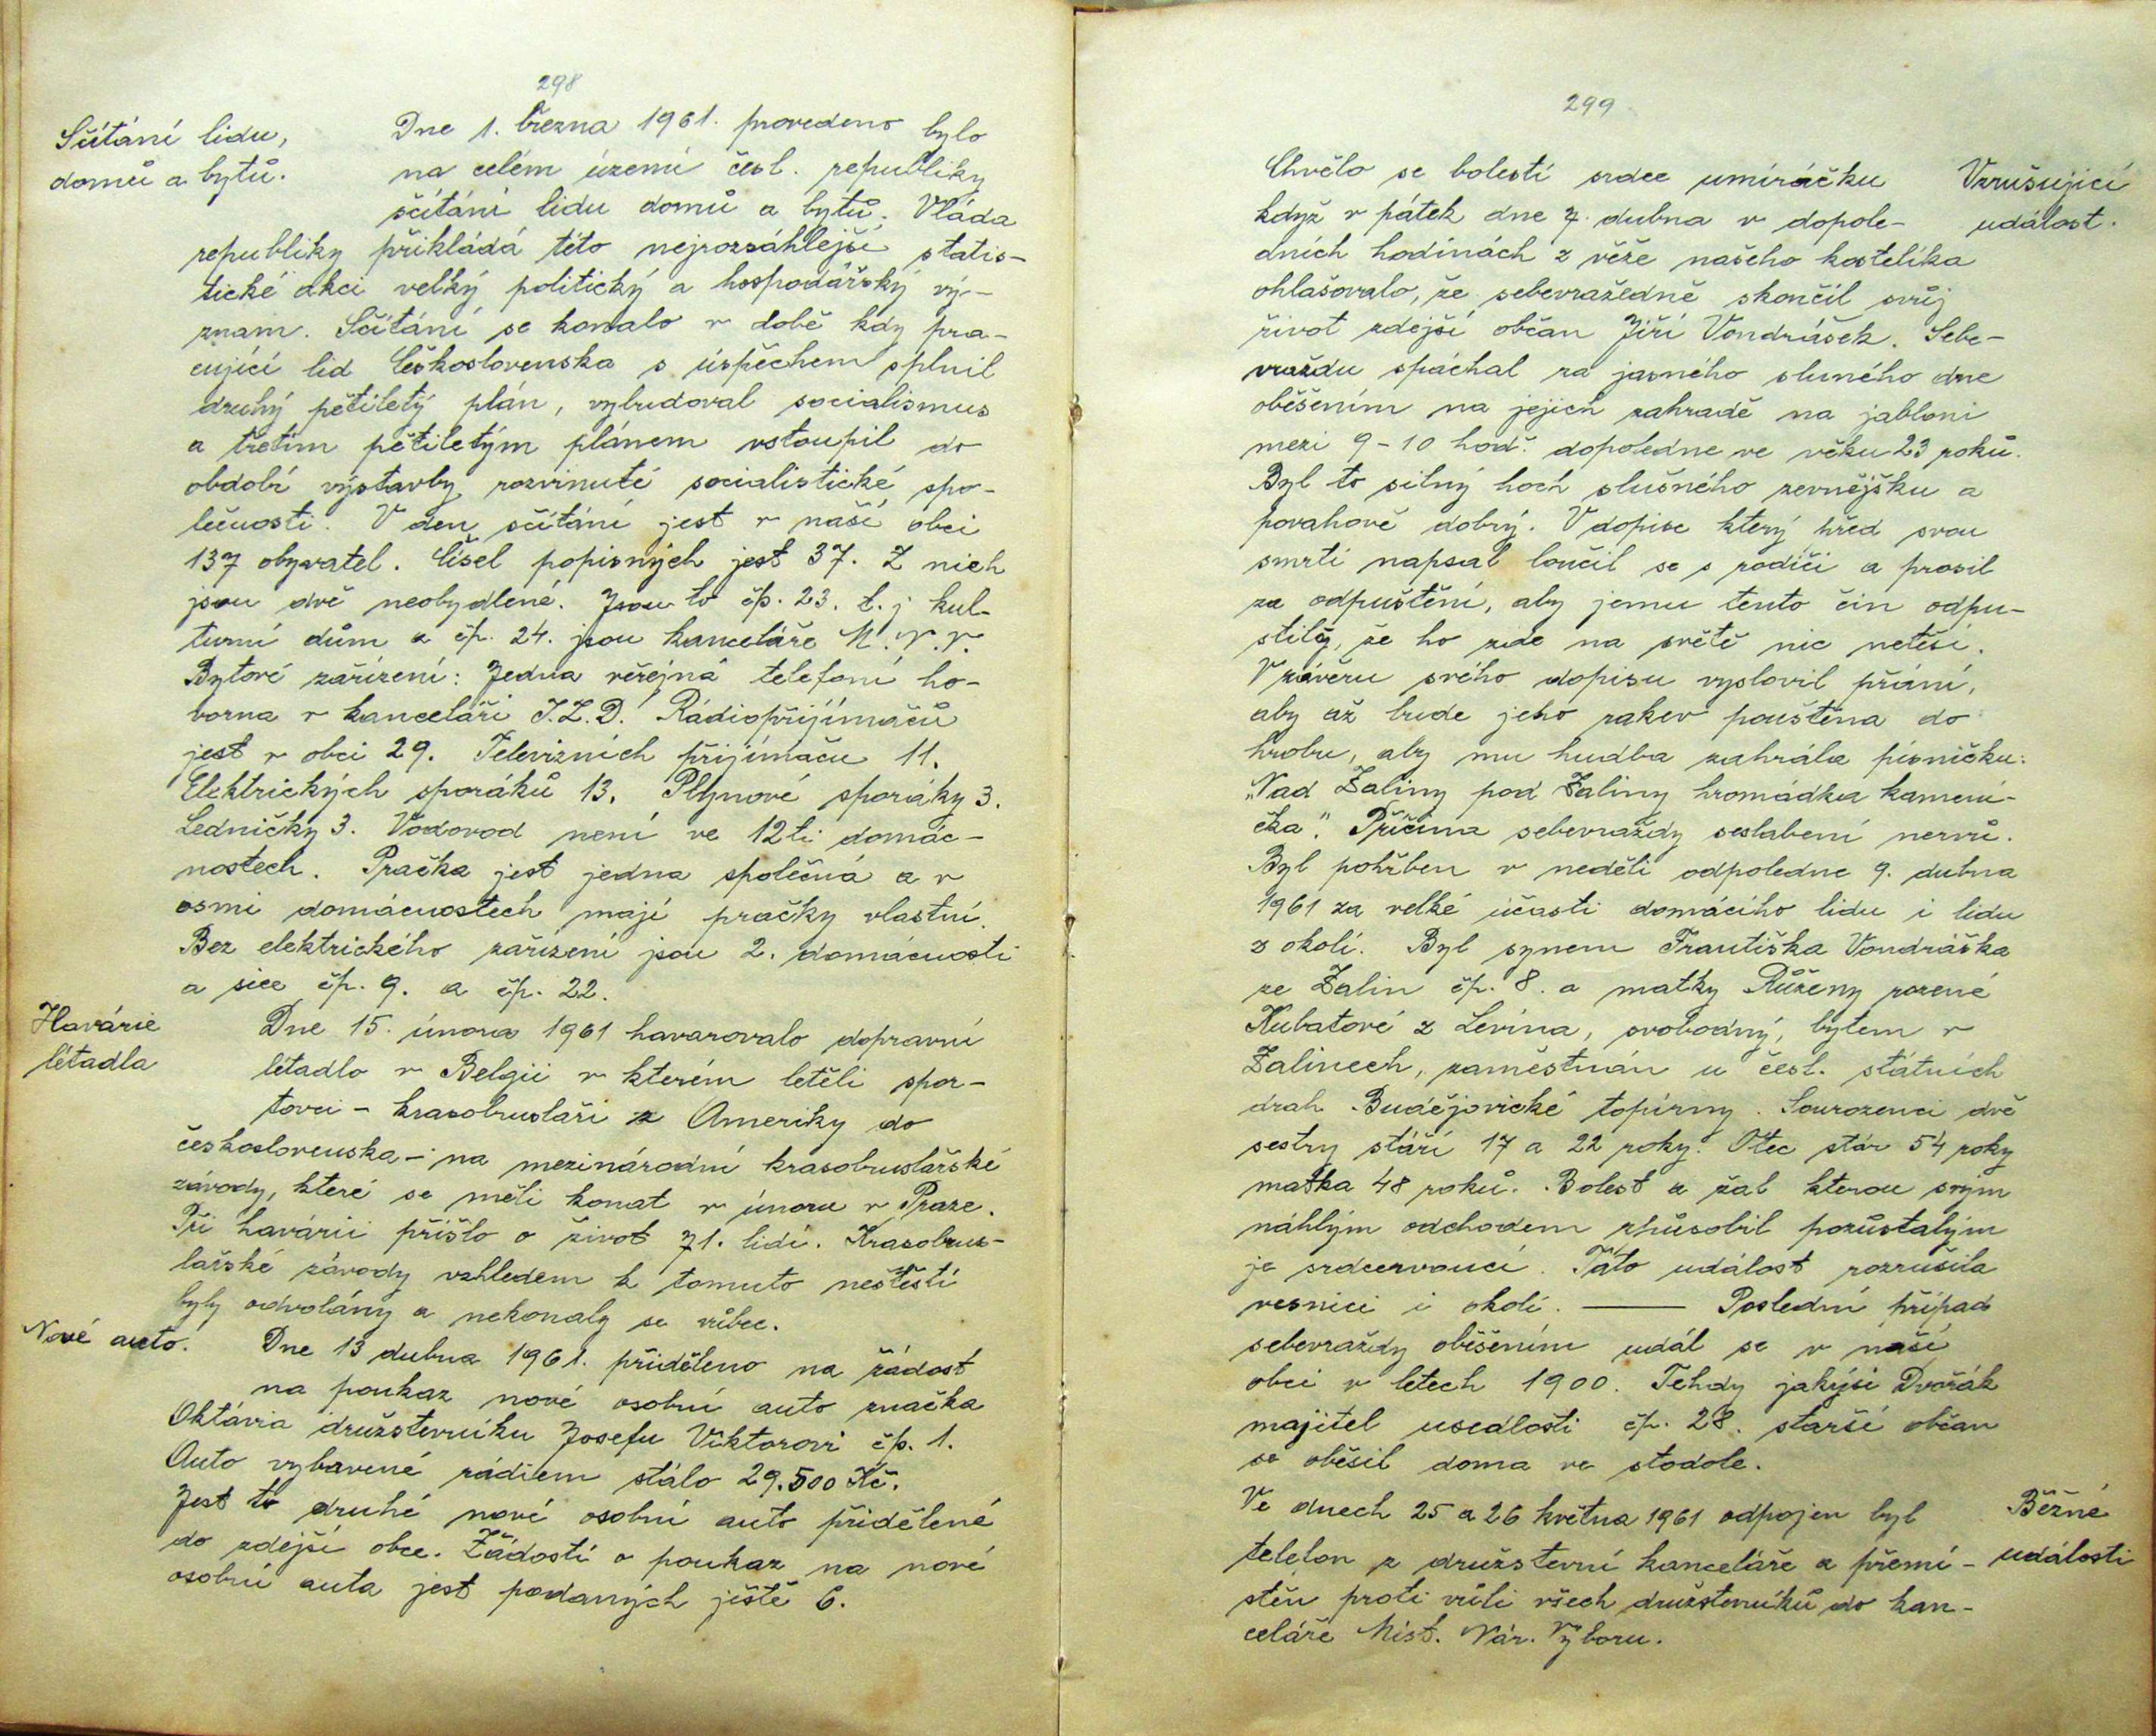 298
Sčítání lidu,
domů a bytů.
Dne 1. března 1961. provedeno bylo
na celém území česl. republiky
sčítání lidu domů a bytů. Vláda
republiky přikládá této nejrozsáhlejší statis-
tické akci velký politický a hospodářský vý-
znam. Sčítání se konalo v době kdy pra-
cující lid Československa s úspěchem splnil
druhý pětiletý plán, vybudoval socialismus
a třetím pětiletým plánem vstoupil do
období výstavby rozvinuté socialistické spo-
lečnosti. V den sčítání jest v naší obci
137 obyvatel. Čísel popisných jest 37. Z nich
jsou dvě neobydlené. Jsou to čp. 23. t.j kul-
turní dům a čp. 24. jsou kanceláře M.N.V.
Bytové zařízení: Jedna veřejná telefoní ho-
vorna v kanceláři J.Z.D. Rádiopřijímačů
jest v obci 29. Televizních přijímačů 11.
Elektrických sporáků 13. Plynové sporáky 3.
Ledničky 3. Vodovod není ve 12ti domác-
nostech. Pračka jest jedna společná a v
osmi domácnostech mají pračky vlastní.
Bez elektrického zařízení jsou 2. domácnosti
a sice čp. 9. a čp. 22.
Havárie
létadla
Dne 15. února 1961 havarovalo dopravní
létadlo v Belgii v kterém letěli spor-
tovci - krasobruslaři z Ameriky do
československa - na mezinárodní krasobruslařské
závody, které se měli konat v únoru v Praze.
Při havárii přišlo o život 71. lidí. Krasobrus-
lařské závody vzhledem k tomuto neštěstí
byly odvolány a nekonaly se vůbec.
Nové auto.
Dne 13 dubna 1961. přiděleno na žádost
na poukaz nové osobní auto značka
Oktávia družsterníku Josefu Viktorovi čp. 1.
Auto vybavené rádiem stálo 29.500 Kč.
Jest to druhé nové osobní auto přidělené
do zdejší obce. Žádostí o poukaz na nové
osobní auta jest podaných ještě 6.
299
Vzrušující
událost.
Chvělo se bolestí srdce umíráčku
když v pátek dne 7. dubna v dopole-
dních hodinách z věže našeho kostelíka
ohlašovalo, že sebevražedně skončil svůj
život zdejší občan Jiří Vondrášek. Sebe-
vraždu spáchal za jasného sluného dne
oběšením na jejich zahradě na jabloni
mezi 9-10 hod. dopoledne ve věku 23 roků.
Byl to silný hoch slušného zevnějšku a
povahově dobrý. V dopise který před svou
smrtí napsal loučil se s rodiči a prosil
za odpuštění, aby jemu tento čin odpu-
stily, že ho zde na světě nic netěší.
V závěru svého dopisu vyslovil přání,
aby až bude jeho rakev pouštěna do
hrobu, aby mu hudba zahrála písničku:
"Nad Žaliny pod Žaliny hromádka kamení-
čka". Příčina sebevraždy seslabení nervů.
Byl pohřben v neděli odpoledne 9. dubna
1961 za velké účasti domácího lidu i lidu
z okolí. Byl synem Františka Vondráška
ze Žalin čp. 8. a matky Růženy rozené
Kubatové z Levína, svobodný, bytem v
Žalinech, zaměstnán u česl. státních
drah Budějovické topírny. Sourozenci dvě
sestry stáří 17 a 22 roky. Otec stár 54 roky
matka 48 roků. Bolest a žal kterou svým
náhlým odchodem způsobil pozůstalým
je srdcervoucí. Tato událost rozrušila
vesnici i okolí. —— Poslední případ
sebevraždy oběšením udál se v naší
obci v letech 1900. Tehdy jakýsi Dvořák
majitel usedlosti čp. 28. starší občan
se oběsil doma ve stodole.
Běžné
události
Ve dnech 25 a 26 května 1961 odpojen byl
telefon z družsterní kanceláře a přemí-
stěn proti vůli všech družsterníků do kan-
celáře Míst. Nár. Výboru.